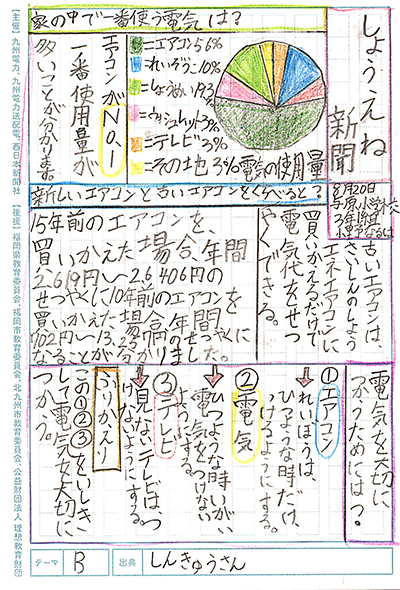 しょうえね
新聞
8月20日
3年1組
家の中で一番使う電気は?
=エアコン56%
=れいぞうこ10%
=しょうめい19.3%
=テレビ3%
=その他
電気の使用量
エアコンがNo.1
一番使用量が
多いことが分かります
新しいエアコンと古いエアコンをくらべると?
古いエアコンは、
さいしんのしょう
エネエアコンに
買いかえるだけで
電気代をせつ
やくできる。
15年前のエアコンを
買いかえた場合年間
2619円〜26406円の
せつやくに10年前のエアコンを
買いかえた場合年間
電気を大切に
つかうためには?
①エアコン
れいぼうは、
ひつような時だけ、
つけるようにする。
②電気
ひつような時いがい
電気をつけない
ようにする。
③テレビ
見ないテレビは、つ
けないようにする。
ふりかえり
この①②③をいしき
して電気を大切に
つかう。
テーマ B
出典 しんきゅうさん
【主催】九州電力、九州電力送配電、西日本新聞社
【後援】福岡県教育委員会、福岡市教育委員会、北九州市教育委員会、公益財団法人 理想教育財団